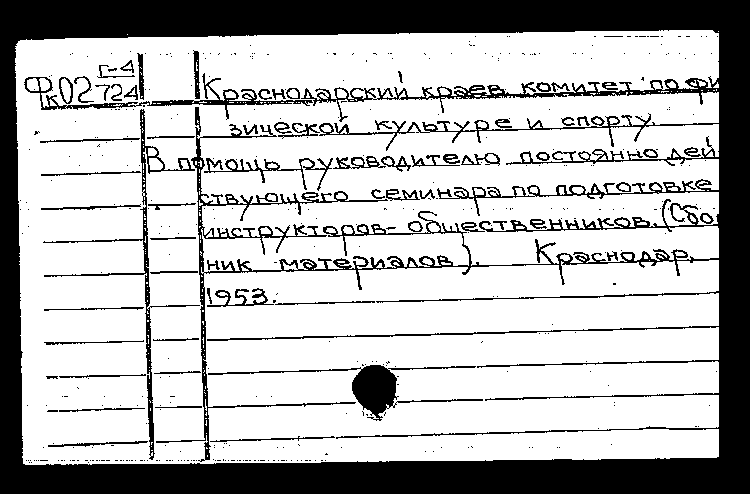 Фк02 Г-4/724
Краснодарский краев. комитет по фи
зической культуре и спорту.
В помощь руководителю постоянно дей
ствующего семинара по подготовке
инструкторов-общественников. (Сбор
ник материалов). Краснодар,
1953.